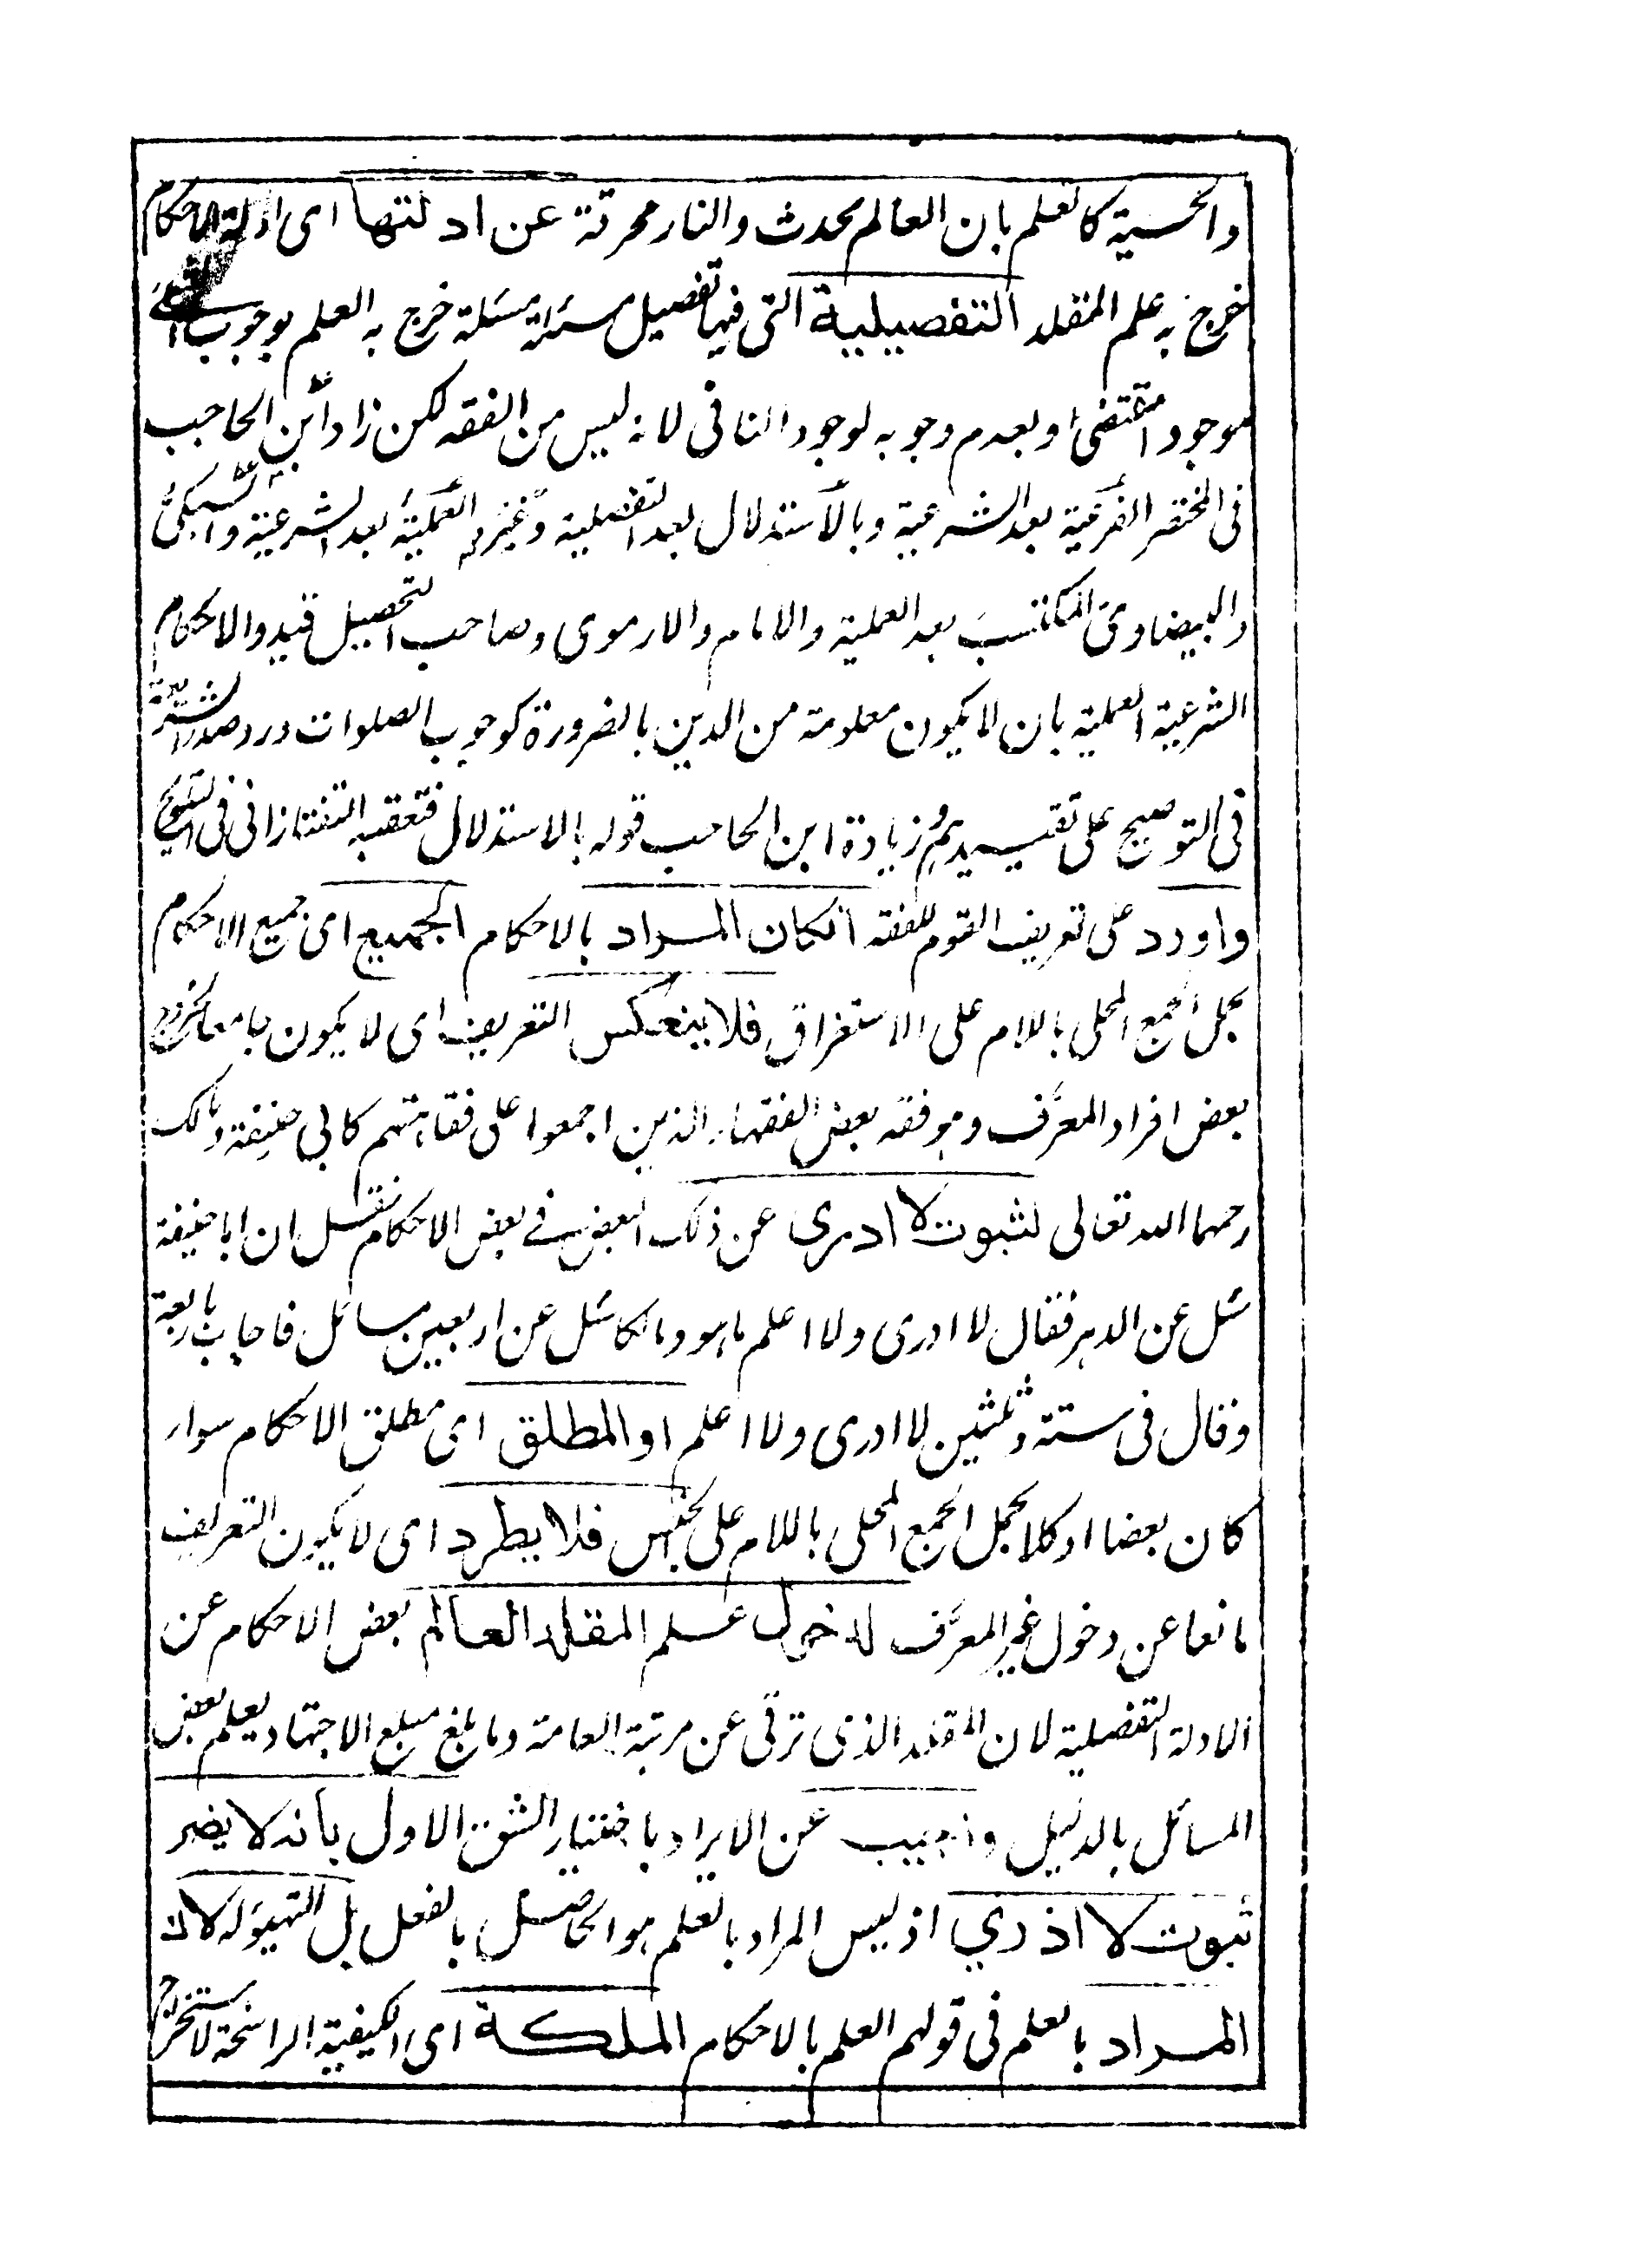 والحسية كالعلم بان العالم محدث والنار محرقة عن ادلتها اى ادلة الاحكام
خرج به علم المقلد التفصيلية التى فيها تفصيل مسئلة مسئلة خرج به العلم بوجوب
بوجود المقتضى او بعدم وجوبه لوجود النافى لانه ليس من الفقه لكن زاد ابن الحاجب
فى المختصر الفرعية بعد الشرعية وبالاستدلال بعد التفصيلية وغيره العملية بعد الشرعية والسبكى
والبيضاوى المكتسب بعد العملية والامام والارموى وصاحب التحصيل قيدوا الاحكام
الشرعية العملية بان لا يكون معلومة من الدين بالضرورة كوجوب الصلوات ورد صدر الشريعة
فى التوضيح على تقييدهم وزيادة ابن الحاجب قوله بالاستدلال فتعقبه التفتازانى فى التلويح
واورد على تعريف القوم للفقه انكان المراد بالاحكام الجميع اى جميع الاحكام
بحمل الجمع المحلى باللام على الاستغراق فلا ينعكس التعريف اى لا يكون جامعا لخروج
بعض افراد المعرَّف وهو فقه بعض الفقهاء الذين اجمعوا على فقاهتهم كابى حنيفة ومالك
رحمهما الله تعالى لثبوت لا ادرى عن ذلك البعض فے بعض الاحكام نقل ان ابا حنيفة
سئل عن الدهر فقال لا ادرى ولا اعلم ما هو ومالكا سئل عن اربعين مسائل فاجاب باربعة
وقال فى ستة وثلثين لا ادرى ولا اعلم او المطلق اى مطلق الاحكام سواء
كان بعضا او كلا بحمل الجمع المحلى باللام على الجنس فلا يطرد اى لا يكون التعريف
مانعا عن دخول غير المعرَّف لدخول علم المقلد العالم بعض الاحكام عن
الادلة التفصلية لان المقلد الذى ترقى عن مرتبة العامة وما بلغ مبلغ الاجتهاد يعلم بعض
المسائل بالدليل واجيب عن الايراد باختيار الشق الاول بأنه لا يضر
ثبوت لا ادري اذ ليس المراد بالعلم هو الحاصل بالفعل بل التهيؤ له لان
المراد بالعلم فى قولهم العلم بالاحكام الملكة اى الكيفية الراسخة لاستخراج